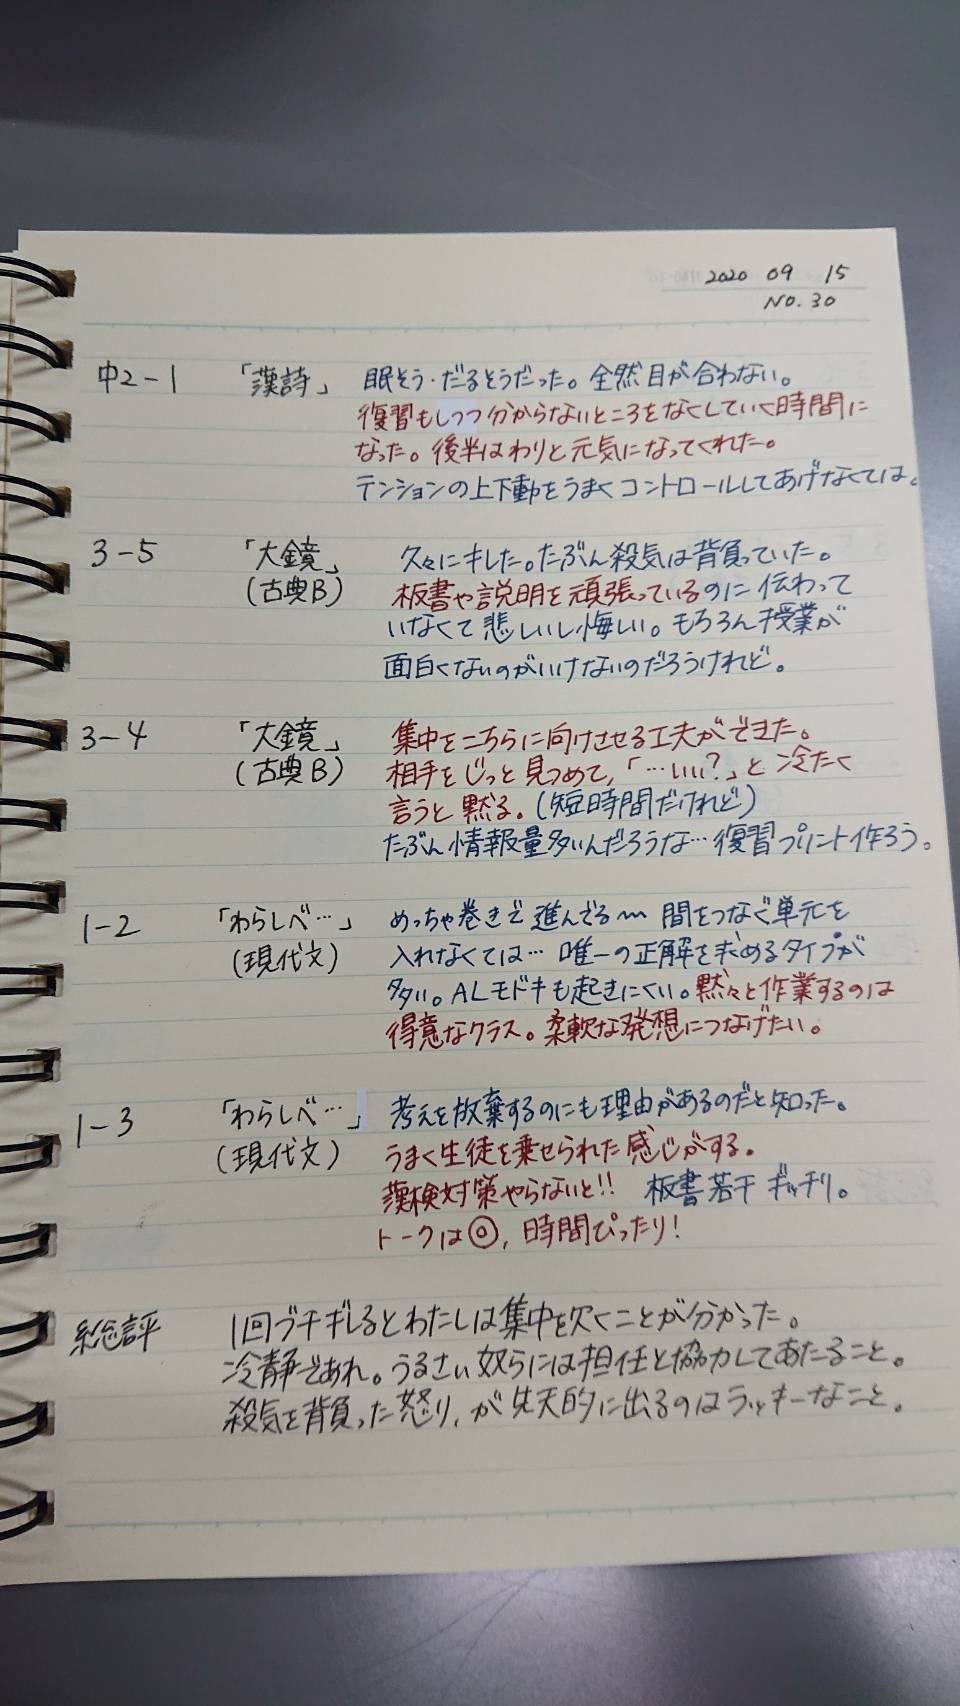 2020 09 15
No. 30
中2-1 「漢詩」 眠そう・だるそうだった。全然目が合わない。
復習もしつつ分からないところをなくしていく時間に
なった。後半はわりと元気になってくれた。
テンションの上下動をうまくコントロールしてあげなくては。
3-5 「大鏡」 久々にキレた。たぶん殺気は背負っていた。
(古典B) 板書や説明を頑張っているのに伝わって
いなくて悲しいし悔しい。もちろん授業が
面白くないのがいけないのだろうけれど。
3-4 「大鏡」 集中をこちらに向けさせる工夫ができた。
(古典B) 相手をじっと見つめて,「…いい?」と冷たく
言うと黙る。(短時間だけれど)
たぶん情報量多いんだろうな…復習プリント作ろう。
1-2 「わらしべ…」 めっちゃ巻きで進んでる〜 間をつなぐ単元を
(現代文) 入れなくては… 唯一の正解を求めるタイプが
多い。ALモドキも起きにくい。黙々と作業するのは
得意なクラス。柔軟な発想につなげたい。
1-3 「わらしべ…」 考えを放棄するのにも理由があるのだと知った。
(現代文) うまく生徒を乗せられた感じがする。
漢検対策やらないと!! 板書若干ギッチリ。
トークは◎, 時間ぴったり!
総評 1回ブチギレるとわたしは集中を欠くことが分かった。
冷静であれ。うるさい奴らには担任と協力してあたること。
殺気を背負った怒り,が先天的に出るのはラッキーなこと。